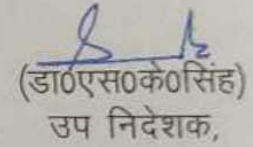 (डा0एस0के0सिंह)
उप निदेशक,